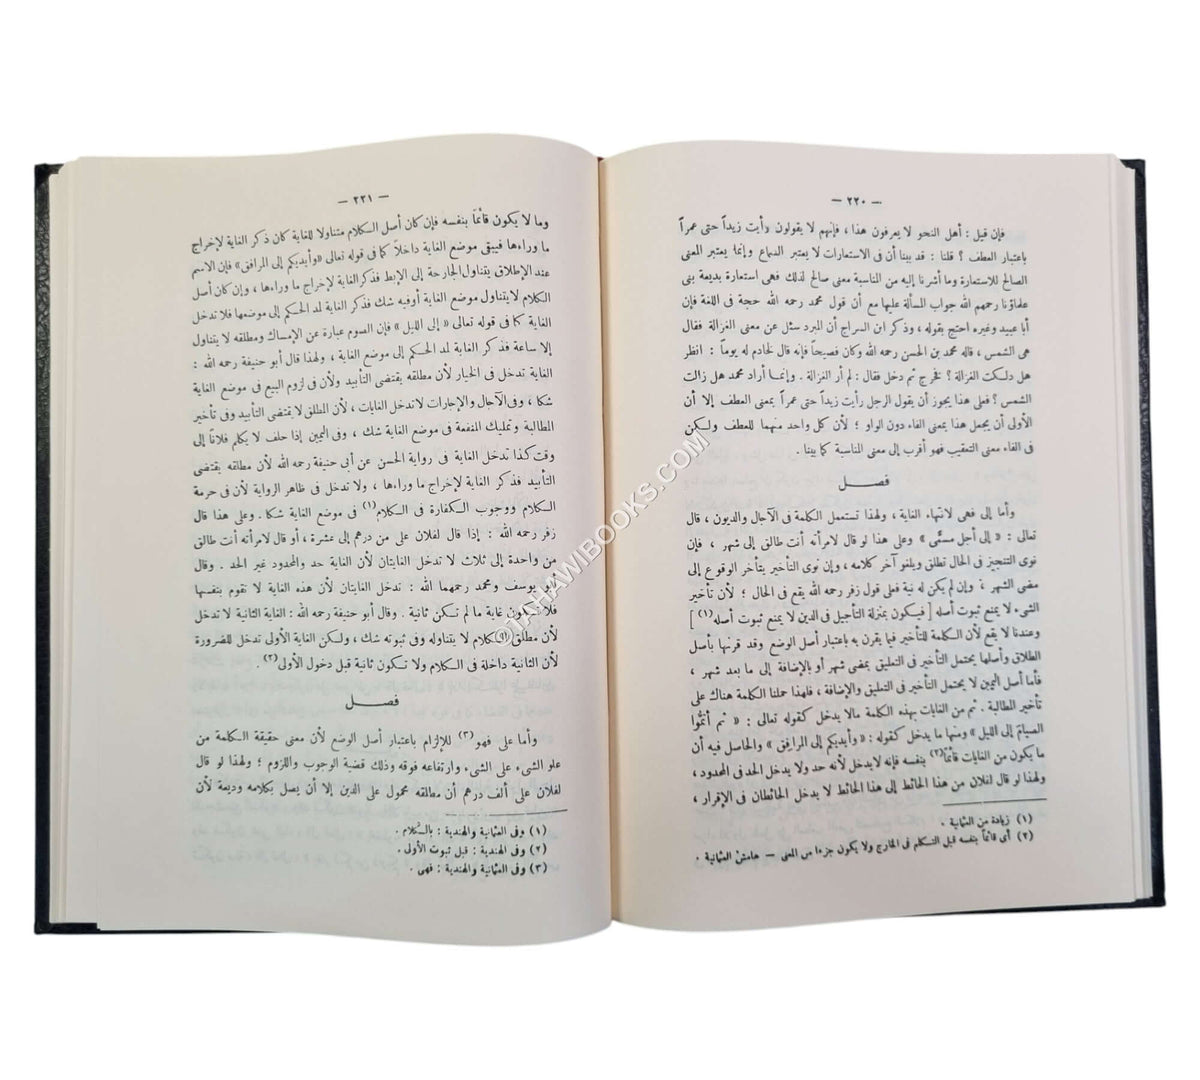 — ٢٢٠ —
فإن قيل : أهل النحو لا يعرفون هذا ، فإنهم لا يقولون رأيت زيداً حتى عمراً
باعتبار العطف ؟ قلنا : قد بينا أن فى الاستعارات لا يعتبر السماع وإنما يعتبر المعنى
الصالح للاستعارة وما أشرنا إليه من المناسبة معنى صالح لذلك فهى استعارة بديعة بنى
علماؤنا رحمهم الله جواب المسألة عليها مع أن قول محمد رحمه الله حجة فى اللغة فإن
أبا عبيد وغيره احتج بقوله ، وذكر ابن السراج أن المبرد سئل عن معنى الغزالة فقال
هى الشمس ، قاله محمد بن الحسن رحمه الله وكان فصيحاً فإنه قال لخادم له يوماً : انظر
هل دلكت الغزالة ؟ فخرج ثم دخل فقال : لم أر الغزالة . وإنما أراد محمد هل زالت
الشمس ؟ فعلى هذا يجوز أن يقول الرجل رأيت زيداً حتى عمراً بمعنى العطف إلا أن
الأولى أن يجعل هذا بمعنى الفاء دون الواو ؛ لأن كل واحد منهما للعطف ولكن
فى الفاء معنى التعقيب فهو أقرب إلى معنى المناسبة كما بينا .
فصل
وأما إلى فهى لانتهاء الغاية ، ولهذا تستعمل الكلمة فى الآجال والديون ، قال
تعالى : « إلى أجل مسمًّى » وعلى هذا لو قال لامرأته أنت طالق إلى شهر ، فإن
نوى التنجيز فى الحال تطلق ويلغو آخر كلامه ، وإن نوى التأخير يتأخر الوقوع إلى
مضى الشهر ، وإن لم يكن له نية فعلى قول زفر رحمه الله يقع فى الحال ؛ لأن تأخير
الشىء لا يمنع ثبوت أصله [ فيكون بمنزلة التأجيل فى الدين لا يمنع ثبوت أصله (١) ]
وعندنا لا يقع لأن الكلمة للتأخير فيما يقرن به باعتبار أصل الوضع وقد قرنها بأصل
الطلاق وأصلها يحتمل التأخير فى التعليق بمضى شهر أو بالإضافة إلى ما بعد شهر ،
فأما أصل اليمين لا يحتمل التأخير فى التعليق والإضافة ، فلهذا حملنا الكلمة هناك على
تأخير المطالبة . ثم من الغايات بهذه الكلمة مالا يدخل كقوله تعالى : « ثم أتمُّوا
الصيامَ إلى الليل » ومنها ما يدخل كقوله : « وأيديكم إلى المرافق » والحاصل فيه أن
ما يكون من الغايات قائماً(٢) بنفسه فإنه لايدخل لأنه حد ولا يدخل الحد فى المحدود ،
ولهذا لو قال لفلان من هذا الحائط إلى هذا الحائط لا يدخل الحائطان فى الإقرار ،
(١) زيادة من العثمانية .
(٢) أى قائماً بنفسه قبل التكلم فى الخارج ولا يكون جزءا من المغى — هامش العثمانية .
— ٢٢١ —
وما لا يكون قائماً بنفسه فإن كان أصل الكلام متناولا للغاية كان ذكر الغاية لإخراج
ما وراءها فيبقى موضع الغاية داخلاً كما فى قوله تعالى «وأيديكم إلى المرافق» فإن الاسم
عند الإطلاق يتناول الجارحة إلى الإبط فذكر الغاية لإخراج ما وراءها ، وإن كان أصل
الكلام لايتناول موضع الغاية أوفيه شك فذكر الغاية لمد الحكم إلى موضعها فلا تدخل
الغاية كما فى قوله تعالى « إلى الليل » فإن الصوم عبارة عن الإمساك ومطلقه لا يتناول
إلا ساعة فذكر الغاية لمد الحكم إلى موضع الغاية ، ولهذا قال أبو حنيفة رحمه الله :
الغاية تدخل فى الخيار لأن مطلقه يقتضى التأبيد ولأن فى لزوم البيع فى موضع الغاية
شكا ، وفى الآجال والإجارات لاتدخل الغايات ، لأن المطلق لا يقتضى التأبيد وفى تأخير
المطالبة وتمليك المنفعة فى موضع الغاية شك ، وفى اليمين إذا حلف لا يكلم فلاناً إلى
وقت كذا تدخل الغاية فى رواية الحسن عن أبى حنيفة رحمه الله لأن مطلقه يقتضى
التأبيد فذكر الغاية لإخراج ما وراءها ، ولا تدخل فى ظاهر الرواية لأن فى حرمة
الكلام ووجوب الكفارة فى الكلام(١) فى موضع الغاية شكا . وعلى هذا قال
زفر رحمه الله : إذا قال لفلان على من درهم إلى عشرة ، أو قال لامرأته أنت طالق
من واحدة إلى ثلاث لا تدخل الغايتان لأن الغاية حد والمحدود غير الحد . وقال
أبو يوسف ومحمد رحمهما الله : تدخل الغايتان لأن هذه الغاية لا تقوم بنفسها
فلا تكون غاية ما لم تكن ثابتة . وقال أبو حنيفة رحمه الله: الغاية الثانية لا تدخل
لأن مطلق الكلام لا يتناوله وفى ثبوته شك ، ولكن الغاية الأولى تدخل للضرورة
لأن الثانية داخلة فى الكلام ولا تكون ثانية قبل دخول الأولى(٢) .
فصل
وأما على فهو(٣) للإلزام باعتبار أصل الوضع لأن معنى حقيقة الكلمة من
علو الشىء على الشىء وارتفاعه فوقه وذلك قضية الوجوب واللزوم ؛ ولهذا لو قال
لفلان علىّ ألف درهم أن مطلقه محمول على الدين إلا أن يصل بكلامه وديعة لأن
(١) وفى العثمانية والهندية : بالكلام .
(٢) وفى الهندية : قبل ثبوت الأولى .
(٣) وفى العثمانية والهندية : فهى .
©TAHAWIBOOKS.COM